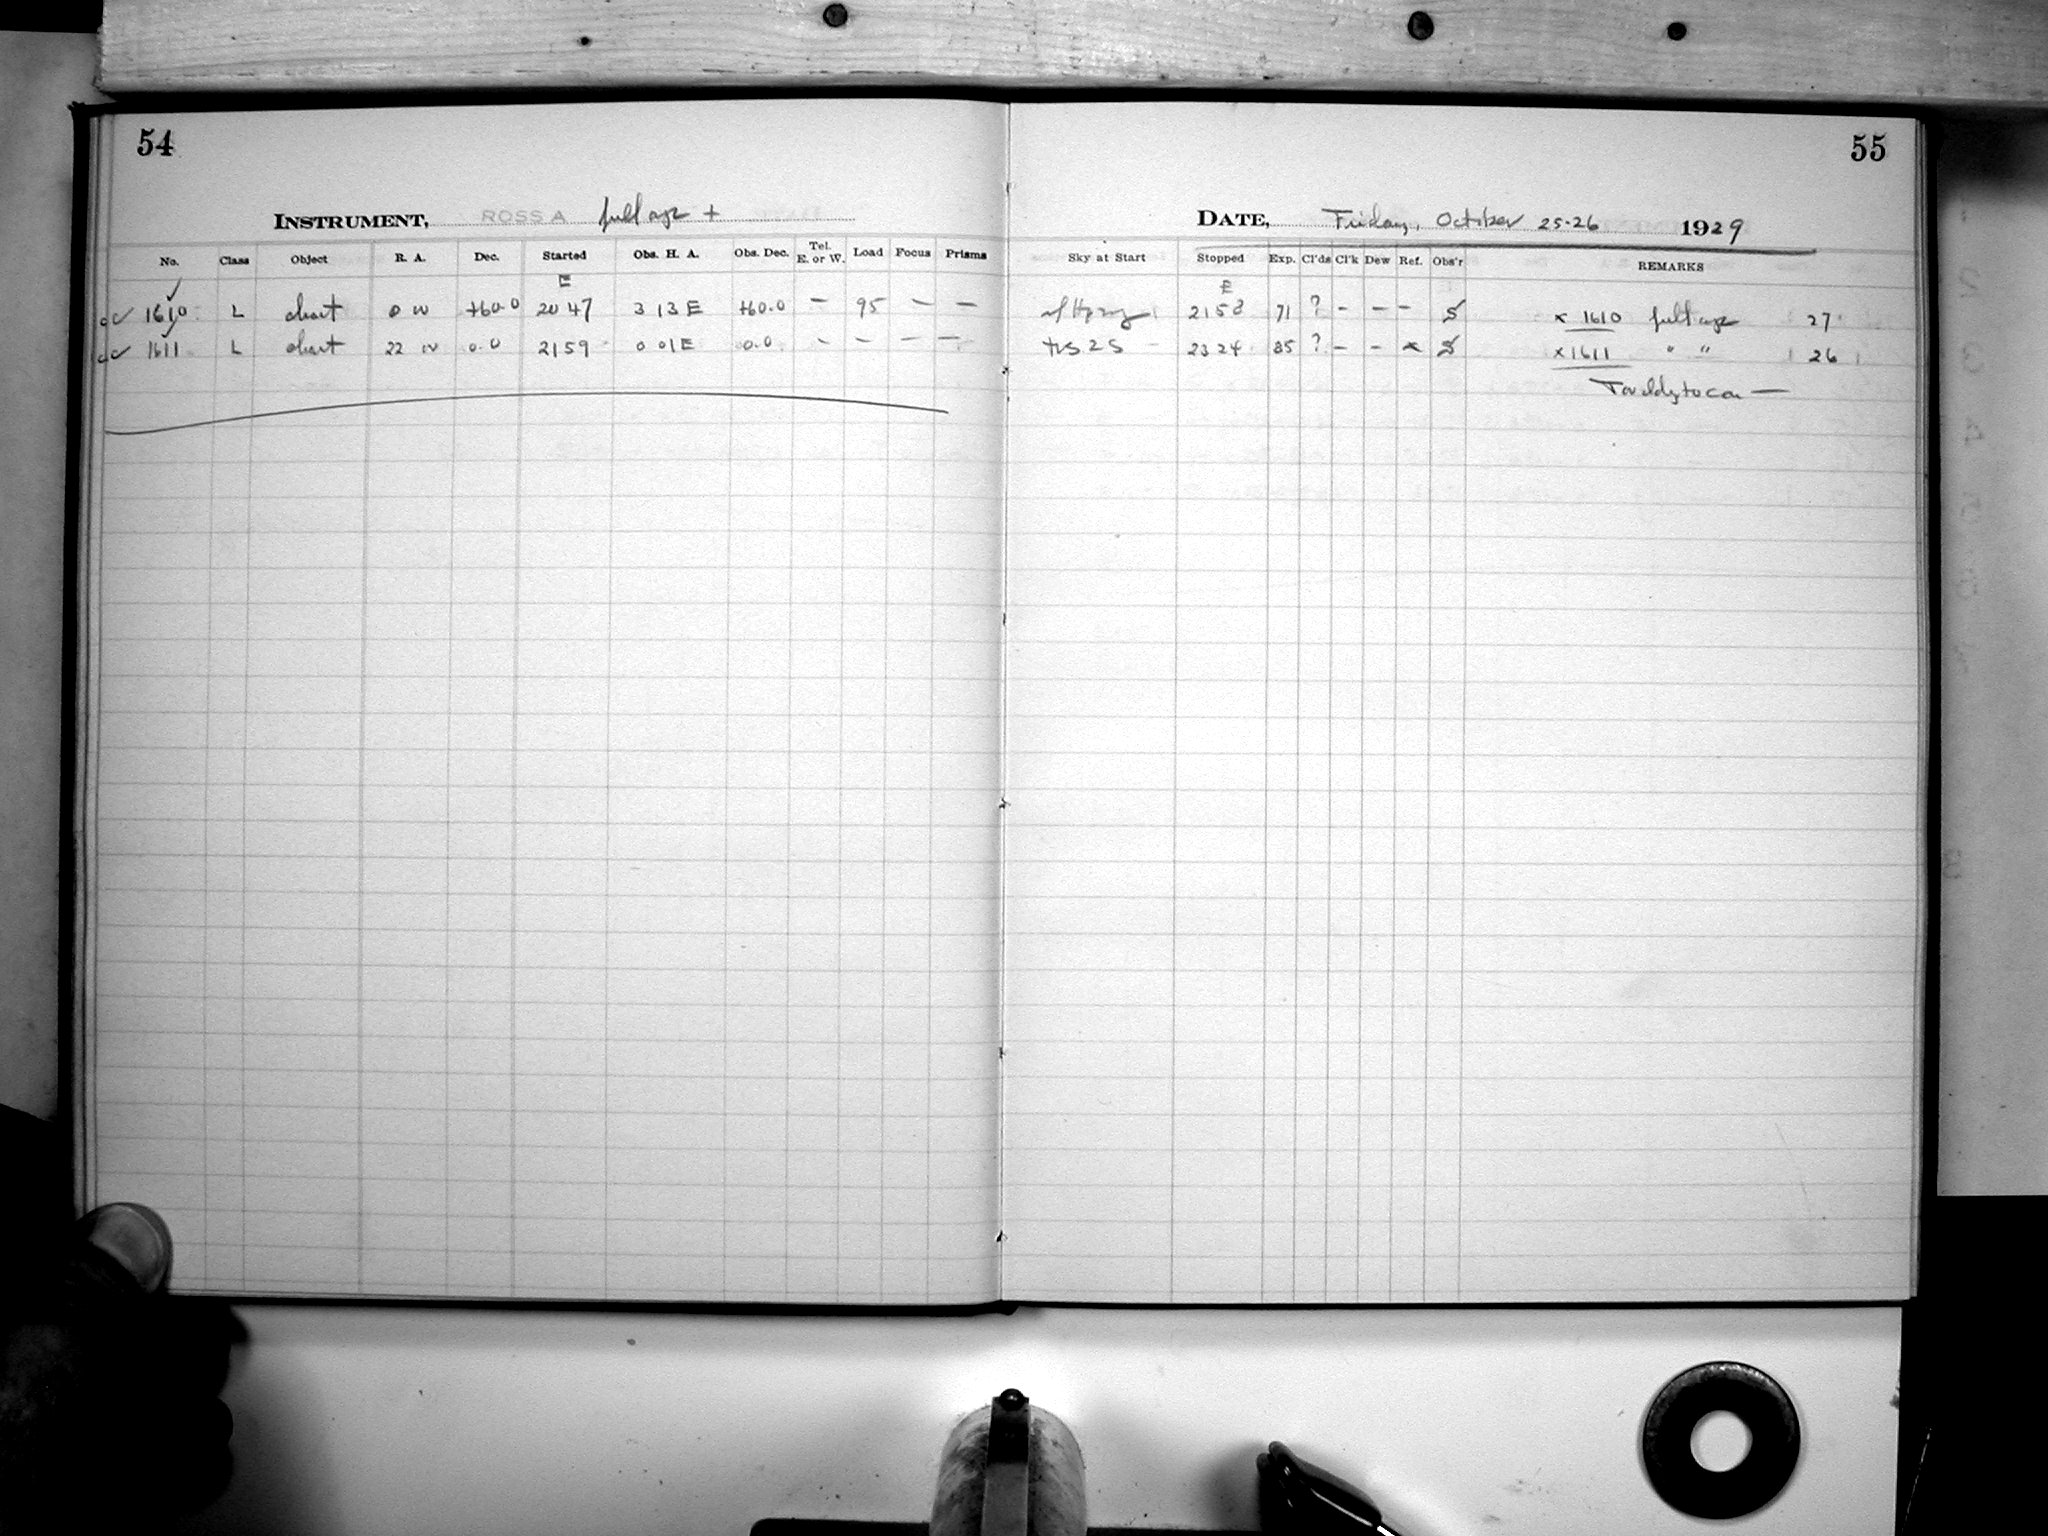 54
INSTRUMENT, ROSS A full ap +
No. Class Object R. A. Dec. Started Obs. H. A. Obs. Dec. Tel. E. or W. Load Focus Prisms
E
1610 L chart 0 W +60.0 2047 3 13 E +60.0 – 95 – –
1611 L chart 22 W 0.0 2159 0 01 E 0.0 – – – –
55
DATE, Friday, October 25-26 1929
Sky at Start Stopped Exp. Cl'ds Cl'k Dew Ref. Obs'r REMARKS
E
2158 71 ? – – – S x 1610 full ap 27
2324 85 ? – – x S x 1611 " " 26